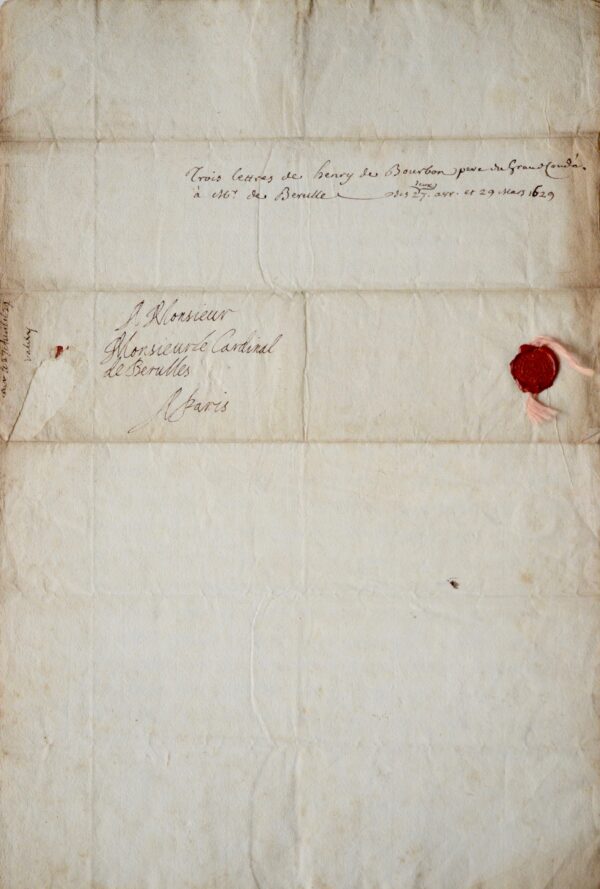 Trois lettres de henry de Bourbon pere du Grand Condé.
à Mr. de Berulle des deux 27. avr. et 29 Mars 1629
A Monsieur
Monsieur le Cardinal
de Berulles
A Paris